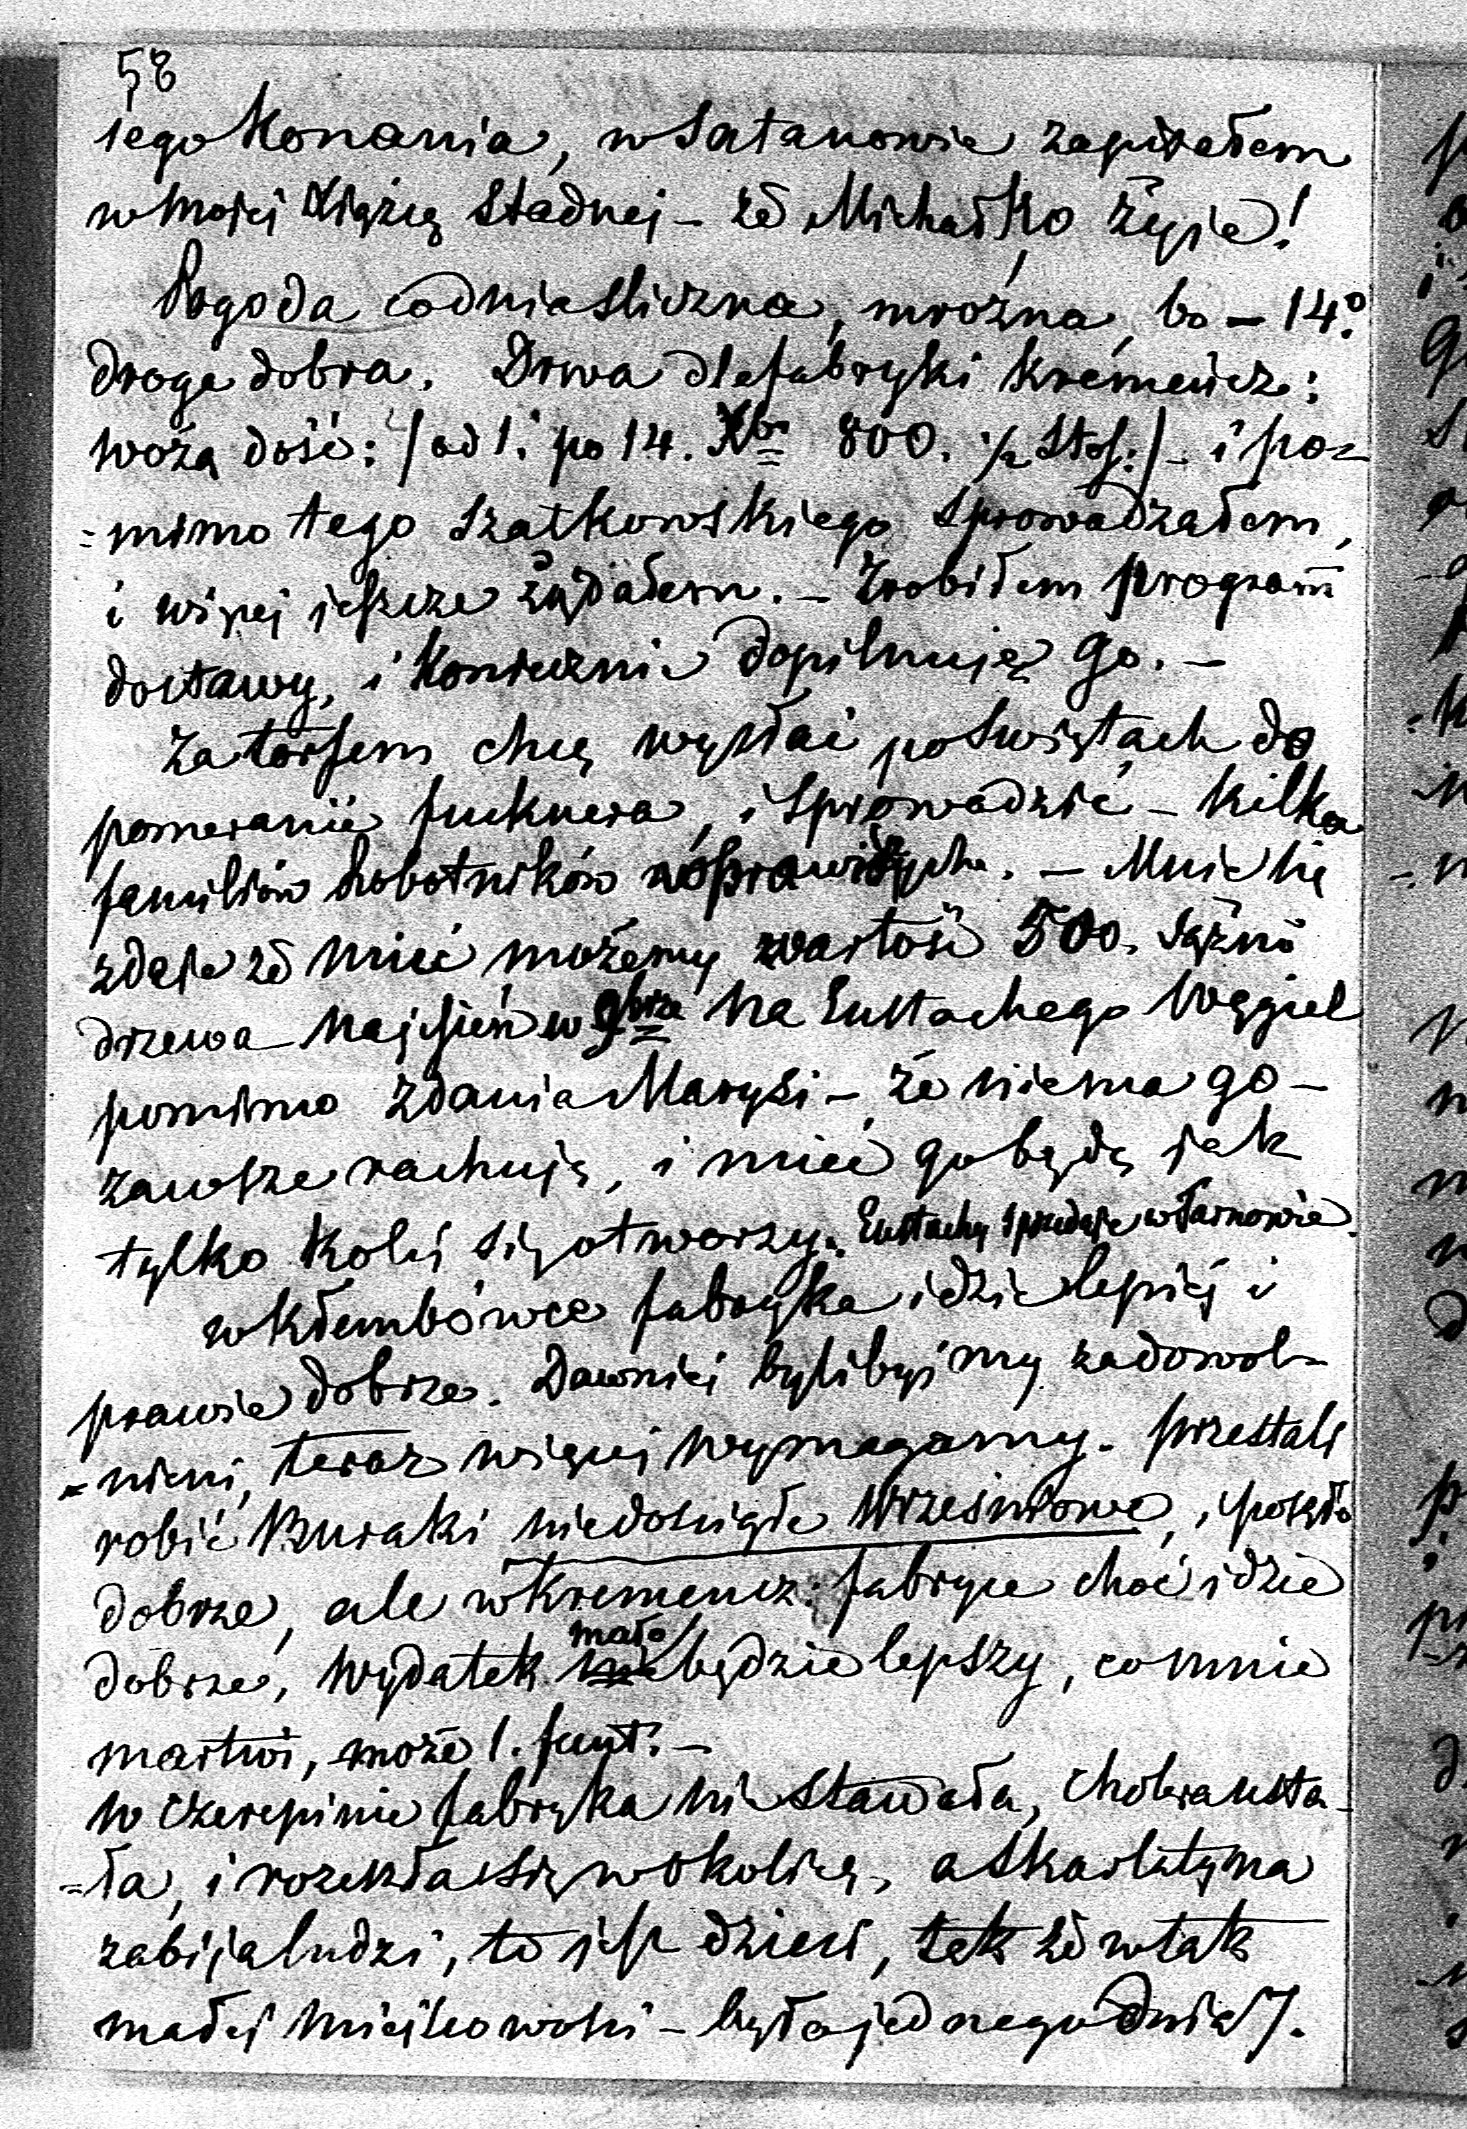 58
iego Konania, w Satanowie zapisałem
w Mojej Xiążcę Stadnej – że Michałko żyje!
Pogoda codnia śliczna, mroźna, bo – 14°.
droga dobra. Drwa dla fabryki Kremeńcz:
wożą dość: /od 1. po 14. Xbr 800. ½ Stos:/ – i po=
=mimo tego Szatkowskiego sprowadzałem,
i więcej jeszcze żądałem. – Zrobiłem program
dostawy, i Koniecznie dopilnuję go. –
Za torfem chcę wysłać po Świętach do
pomeranii Fucknera, i sprowadzić – kilka
familiów Robotników wprawnych. – Mnie się
zdaje że Mieć możemy wartość 500. Sążni
drzewa na jesień w 9brze Na Eustachego Węgiel
pomimo zdania Marysi –, że niema go –
zawsze rachuję, i mieć go będę jak
tylko Kolej się otworzy. Eustachy sprzedaje w Tarnowie.
w Kłembówce fabryka idzie lepiej i
prawie dobrze. Dawniej bylibyśmy zadowol=
=nieni, teraz więcej wymagamy. przestali
robić Buraki niedosięgłe Wrześniowe, i poszło
dobrze, ale w Kremencz: fabryce choć idzie
dobrze, Wydatek mało będzie lepszy, co mnie
martwi, może 1. funt. –
w Czerepinie fabryka nie stawała, Cholera usta=
=ła, i rozeszła się w okolicę, a Skarlatyna
zabija ludzi, to jest dzieci, tak że w tak
małej Miejscowości – było jednego dnia 7.